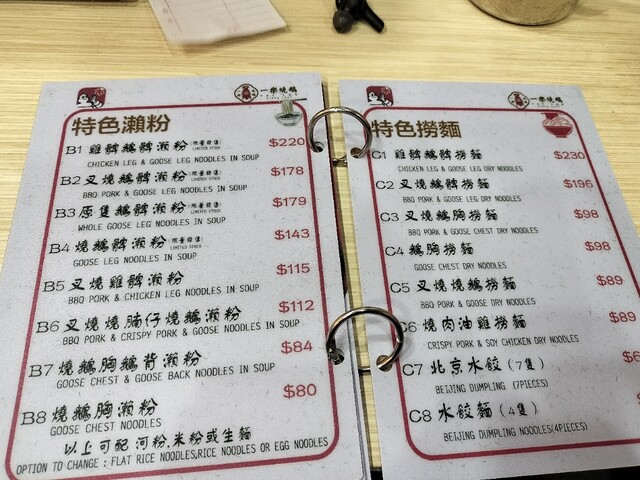 一樂燒鵝
特色瀨粉
B1 雞髀鵝髀瀨粉 (限量發售) LIMITED STOCK $220
CHICKEN LEG & GOOSE LEG NOODLES IN SOUP
B2 叉燒鵝髀瀨粉 (限量發售) LIMITED STOCK $178
BBQ PORK & GOOSE LEG NOODLES IN SOUP
B3 原隻鵝髀瀨粉 (限量發售) LIMITED STOCK $179
WHOLE GOOSE LEG NOODLES IN SOUP
B4 燒鵝髀瀨粉 (限量發售) LIMITED STOCK $143
GOOSE LEG NOODLES IN SOUP
B5 叉燒雞髀瀨粉 $115
BBQ PORK & CHICKEN LEG NOODLES IN SOUP
B6 叉燒燒腩仔燒鵝瀨粉 $112
BBQ PORK & CRISPY PORK & GOOSE NOODLES IN SOUP
B7 燒鵝胸鵝背瀨粉 $84
GOOSE CHEST & GOOSE BACK NOODLES IN SOUP
B8 燒鵝胸瀨粉 $80
GOOSE CHEST NOODLES
以上可配 河粉.米粉或生麵
OPTION TO CHANGE : FLAT RICE NOODLES,RICE NOODLES OR EGG NOODLES
一樂燒鵝
特色撈麵
C1 雞髀鵝髀撈麵 $230
CHICKEN LEG & GOOSE LEG DRY NOODLES
C2 叉燒鵝髀撈麵 $196
BBQ PORK & GOOSE LEG DRY NOODLES
C3 叉燒鵝胸撈麵 $98
BBQ PORK & GOOSE CHEST DRY NOODLES
C4 鵝胸撈麵 $98
GOOSE CHEST DRY NOODLES
C5 叉燒燒鵝撈麵 $89
BBQ PORK & GOOSE DRY NOODLES
C6 燒肉油雞撈麵 $89
CRISPY PORK & SOY CHICKEN DRY NOODLES
C7 北京水餃 (7隻)
BEIJING DUMPLING (7PIECES)
C8 水餃麵 (4隻)
BEIJING DUMPLING NOODLES(4PIECES)